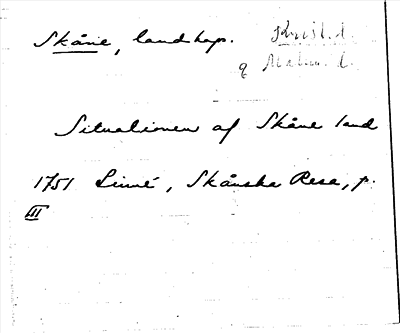 Skåne, landskap. Krist. l.
q Malm. l.
Situationen af Skåne land
1751 Linné, Skånska Resa, p.
III